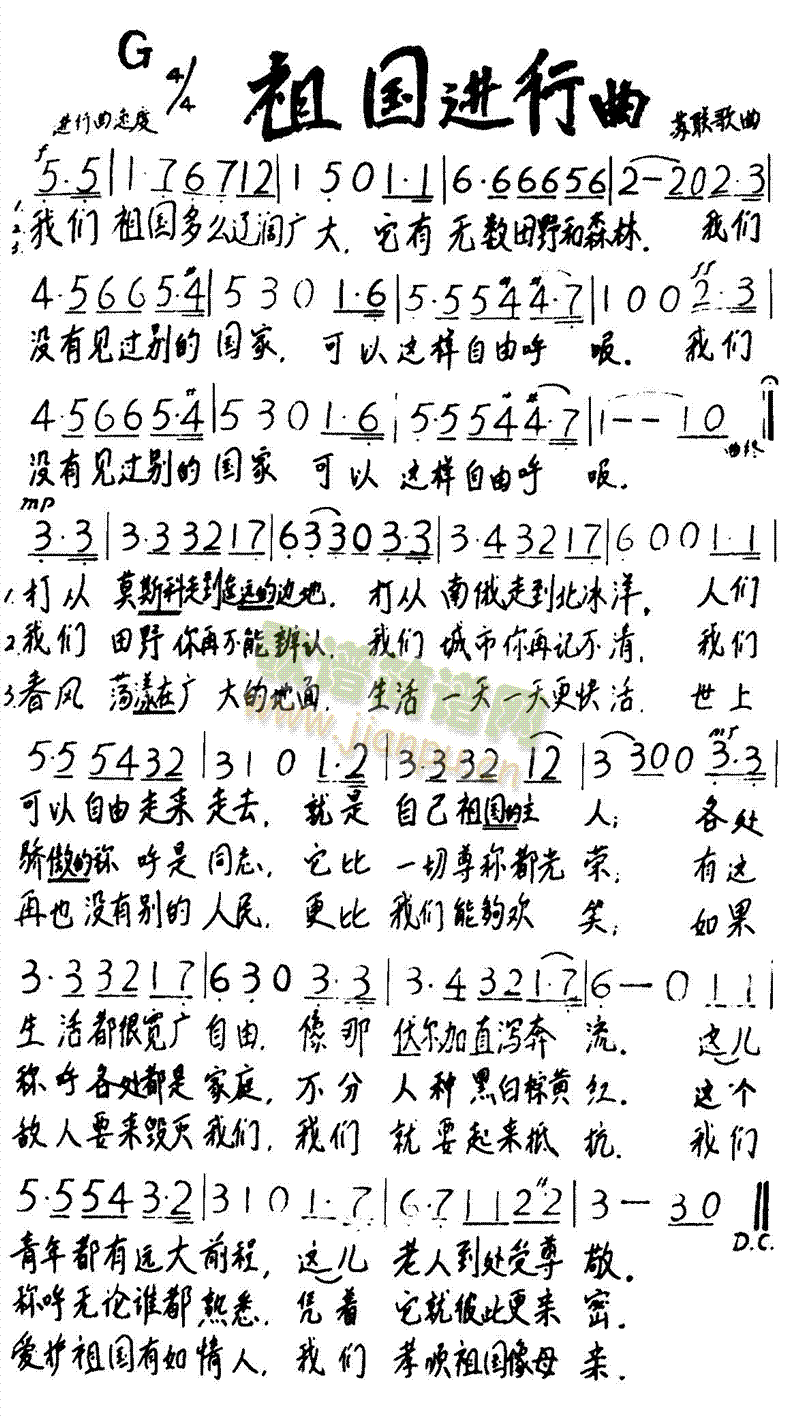 G 4/4 祖国进行曲
进行曲速度 苏联歌曲
f
5·5|1·76712|1501·1|6·66656|2—202·3|
1. 2. 3. 我们祖国多么辽阔广大,它有无数田野和森林. 我们
ff
4·5665·#4|5301·6|5·55#4#4·7|1002·3|
没有见过别的国家,可以这样自由呼吸. 我们
4·5665·#4|5301·6|5·55#4#4·7|1——10
曲终
没有见过别的国家可以这样自由呼吸.
mp
3·3|3·33217|63303·3|3·43217|6001·1|
1.打从莫斯科走到遥远的边地,打从南俄走到北冰洋,人们
2.我们田野你再不能辨认,我们城市你再记不清,我们
3.春风荡漾在广大的地面,生活一天一天更快活,世上
歌谱简谱网
www.jianpu.cn
mf
5·55432|3101·2|3·33212|33003·3|
可以自由走来走去,就是自己祖国的主人;各处
骄傲的称呼是同志,它比一切尊称都光荣;有这
再也没有别的人民,更比我们能够欢笑;如果
3·33217|6303·3|3·4321·7|6—011|
生活都很宽广自由,像那伏尔加直泻奔流. 这儿
称呼各处都是家庭,不分人种黑白棕黄红. 这个
敌人要来毁灭我们,我们就要起来抵抗. 我们
5·5543·2|3101·7|6·71122|3—30
D.C.
青年都有远大前程,这儿老人到处受尊敬.
称呼无论谁都熟悉,凭着它就彼此更亲密.
爱护祖国有如情人,我们孝顺祖国像母亲.